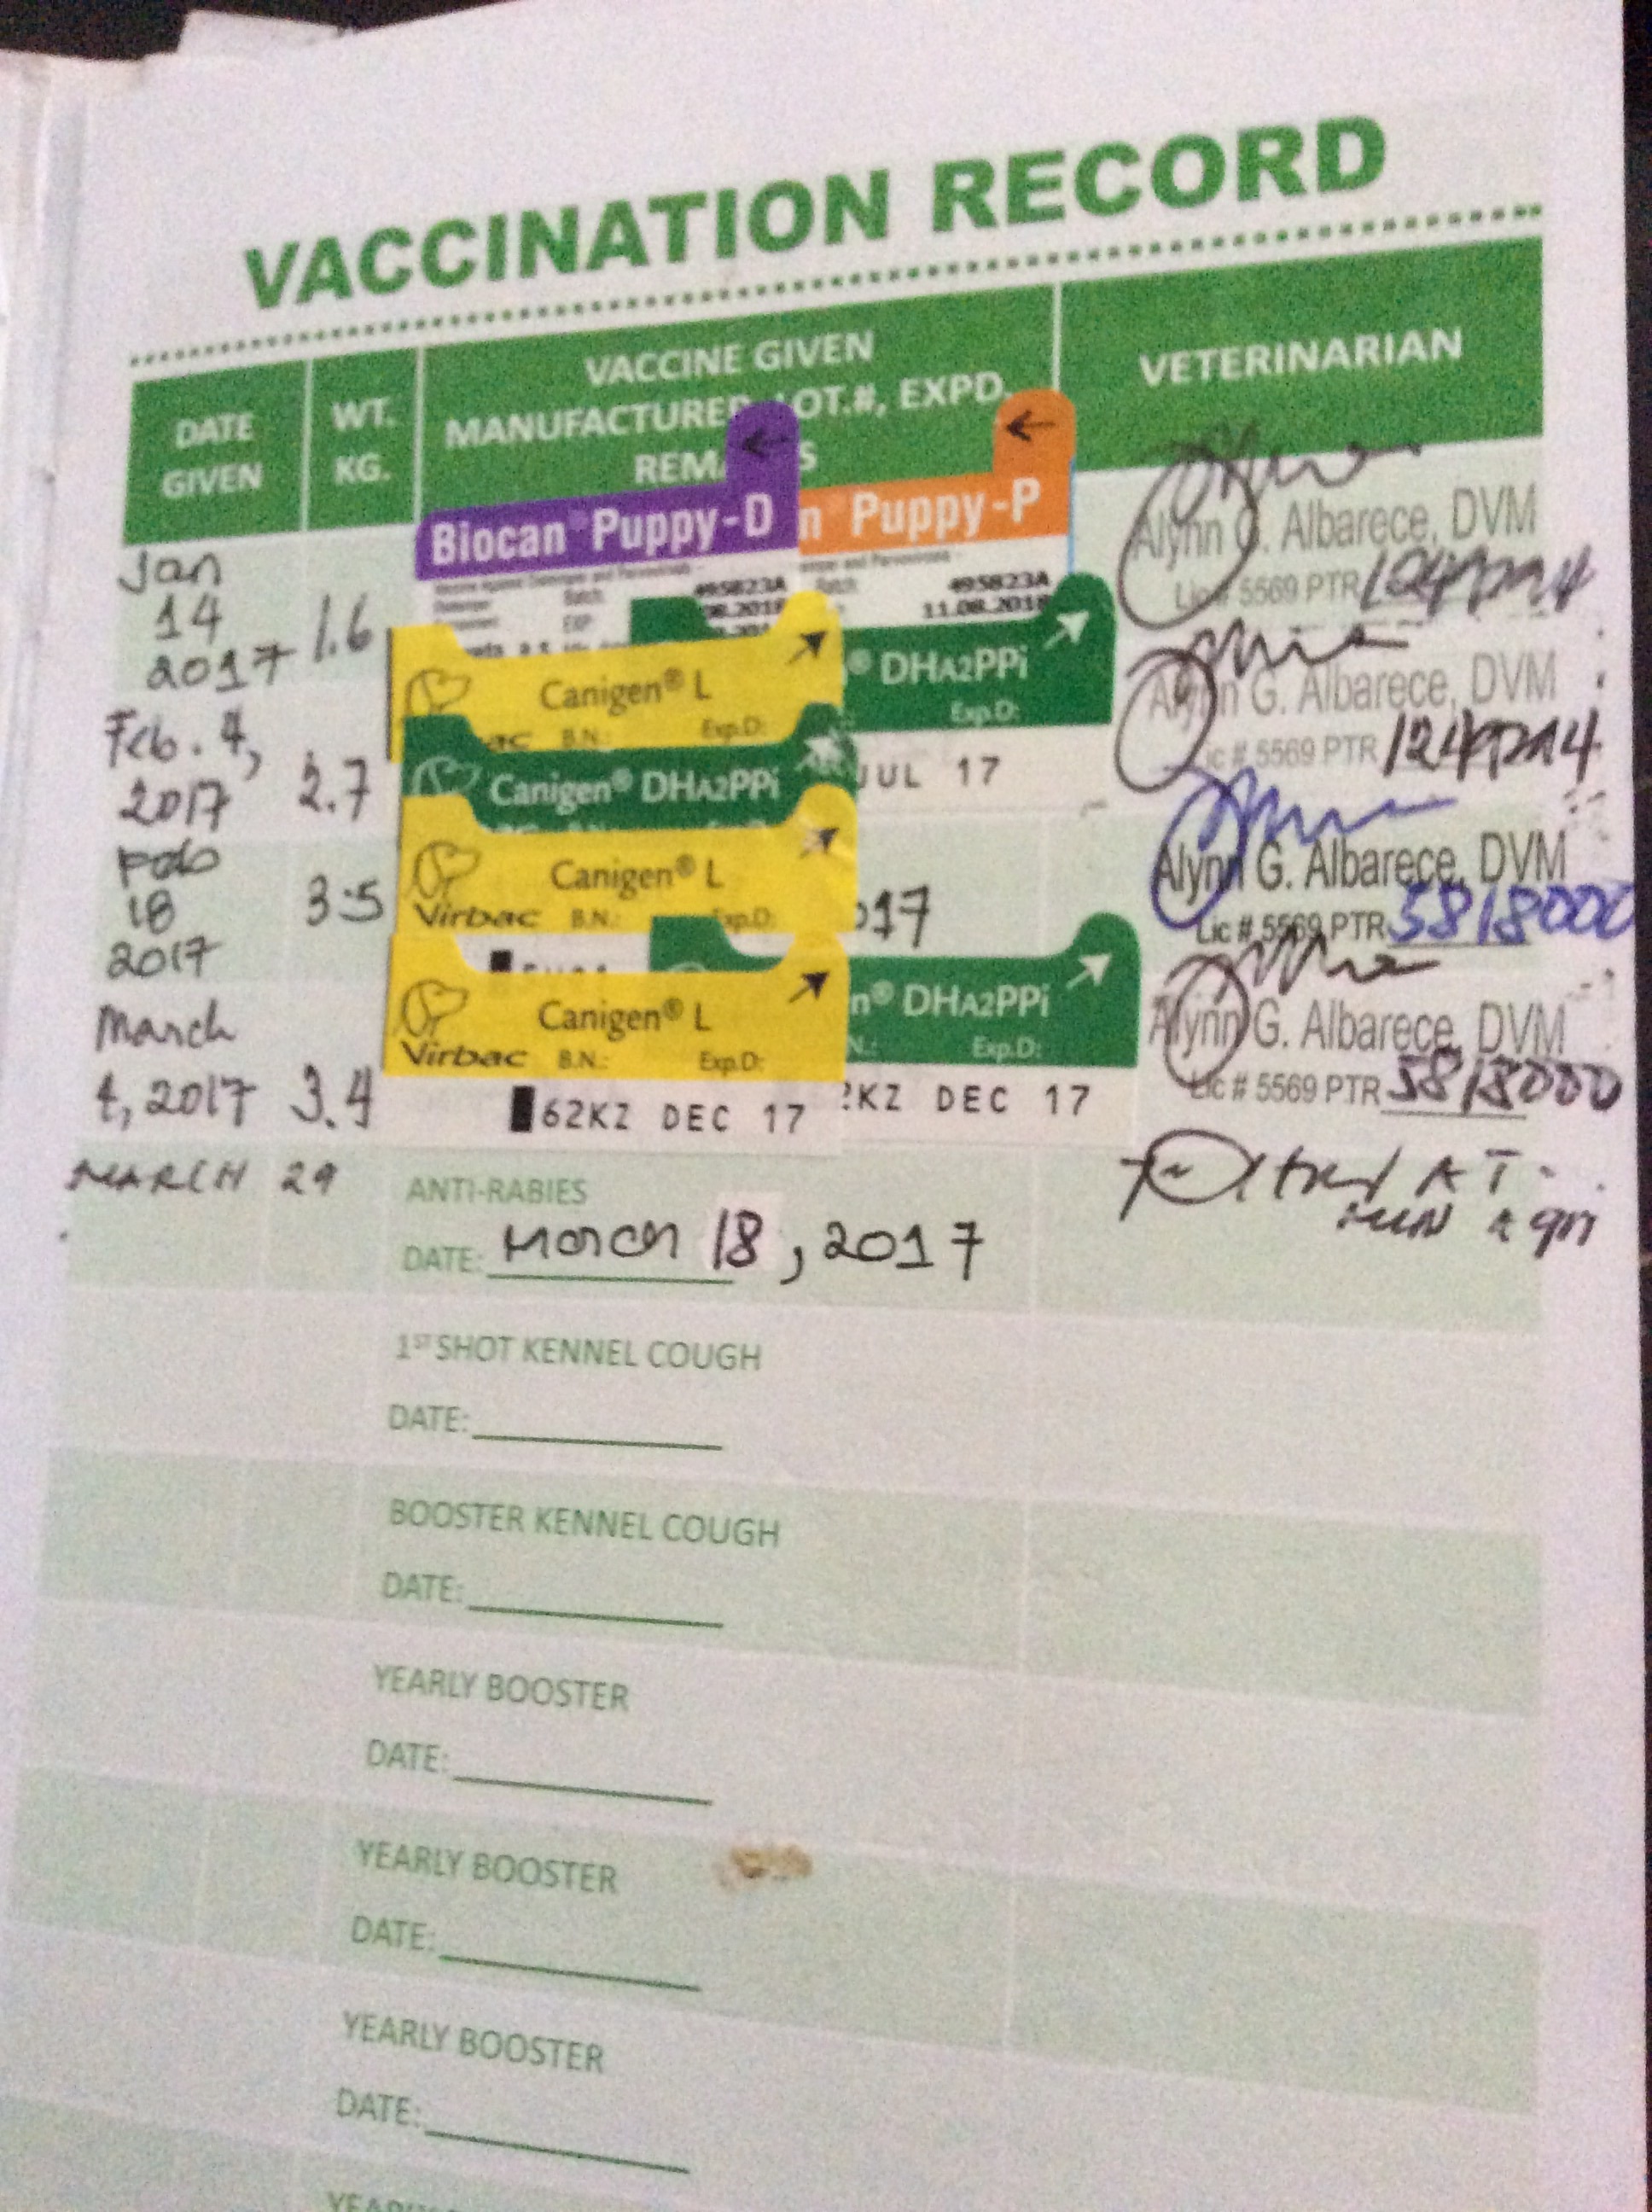 VACCINATION RECORD
DATE GIVEN
WT. KG.
VACCINE GIVEN
MANUFACTURER, LOT.#, EXPD.
REMA S
VETERINARIAN
Jan 14 2017
1.6
Biocan® Puppy-D
n® Puppy-P
Batch: 495823A
495823A
11.08.2018
Alynn G. Albarece, DVM
Lic # 5569 PTR
Feb. 4, 2017
2.7
Canigen® L
B.N.: Exp.D:
® DHA2PPi
Exp.D:
JUL 17
Alynn G. Albarece, DVM
Lic # 5569 PTR
Feb 18 2017
3.5
Canigen® DHA2PPi
Canigen® L
Virbac B.N.: Exp.D:
017
Alynn G. Albarece, DVM
Lic # 5569 PTR 5818000
March 4, 2017
3.4
Canigen® L
Virbac B.N.: Exp.D:
62KZ DEC 17
n® DHA2PPi
N.: Exp.D:
2KZ DEC 17
Alynn G. Albarece, DVM
Lic # 5569 PTR 5818000
MARCH 29
ANTI-RABIES
DATE: March 18, 2017
1ST SHOT KENNEL COUGH
DATE:
BOOSTER KENNEL COUGH
DATE:
YEARLY BOOSTER
DATE:
YEARLY BOOSTER
DATE:
YEARLY BOOSTER
DATE: